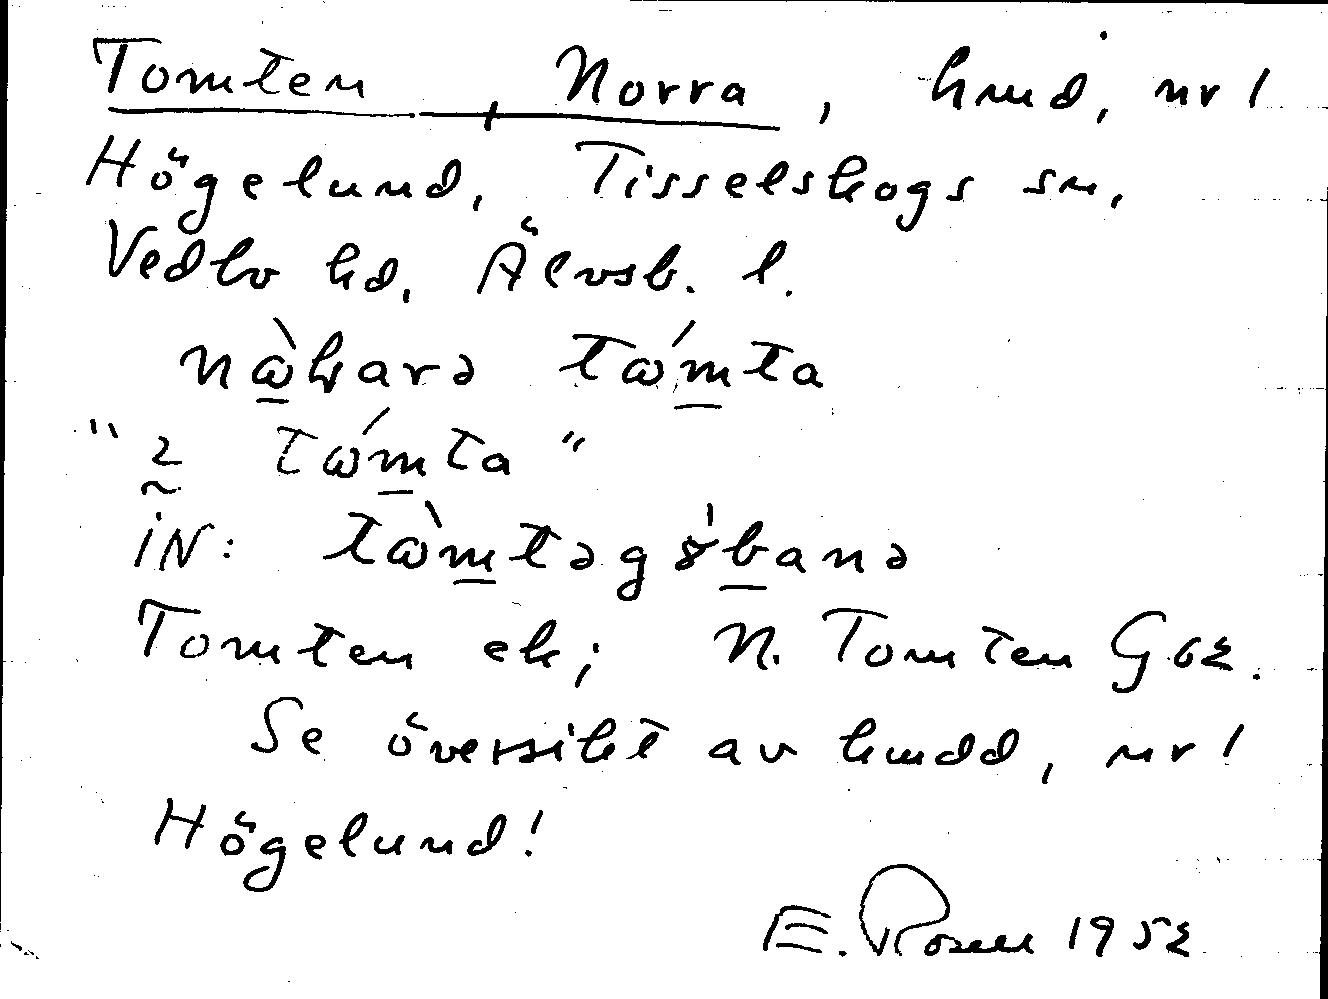 Tomten, Norra, hmd, nr 1
Högelund, Tisselskogs sn,
Vedbo hd, Älvsb. l.
tɷ́mta
" 2 tɷ́mta "
IN: tɷ̀mtəgǒ̀banə
Tomten ek; N. Tomten G62.
Se översikt av hmdd, nr 1
Högelund!
E. Rosell 1952